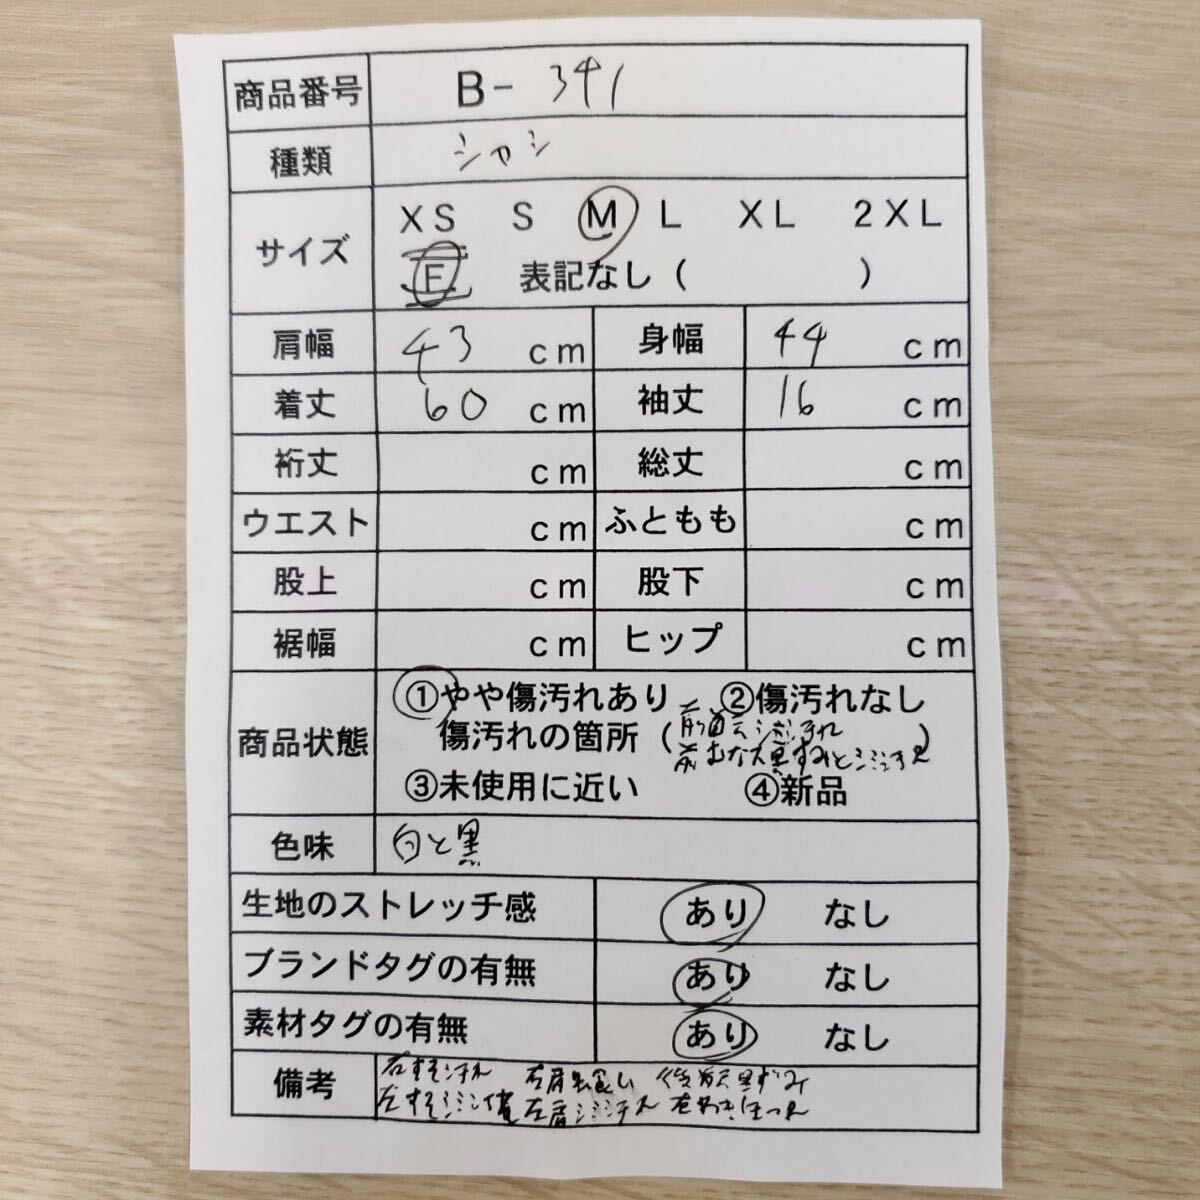 商品番号 B- 341
種類 シャシ
サイズ XS S M L XL 2XL
F 表記なし ( )
肩幅 43 cm 身幅 44 cm
着丈 60 cm 袖丈 16 cm
裄丈 cm 総丈 cm
ウエスト cm ふともも cm
股上 cm 股下 cm
裾幅 cm ヒップ cm
商品状態 ①やや傷汚れあり ②傷汚れなし
傷汚れの箇所 ( )
③未使用に近い ④新品
色味 白と黒
生地のストレッチ感 あり なし
ブランドタグの有無 あり なし
素材タグの有無 あり なし
備考